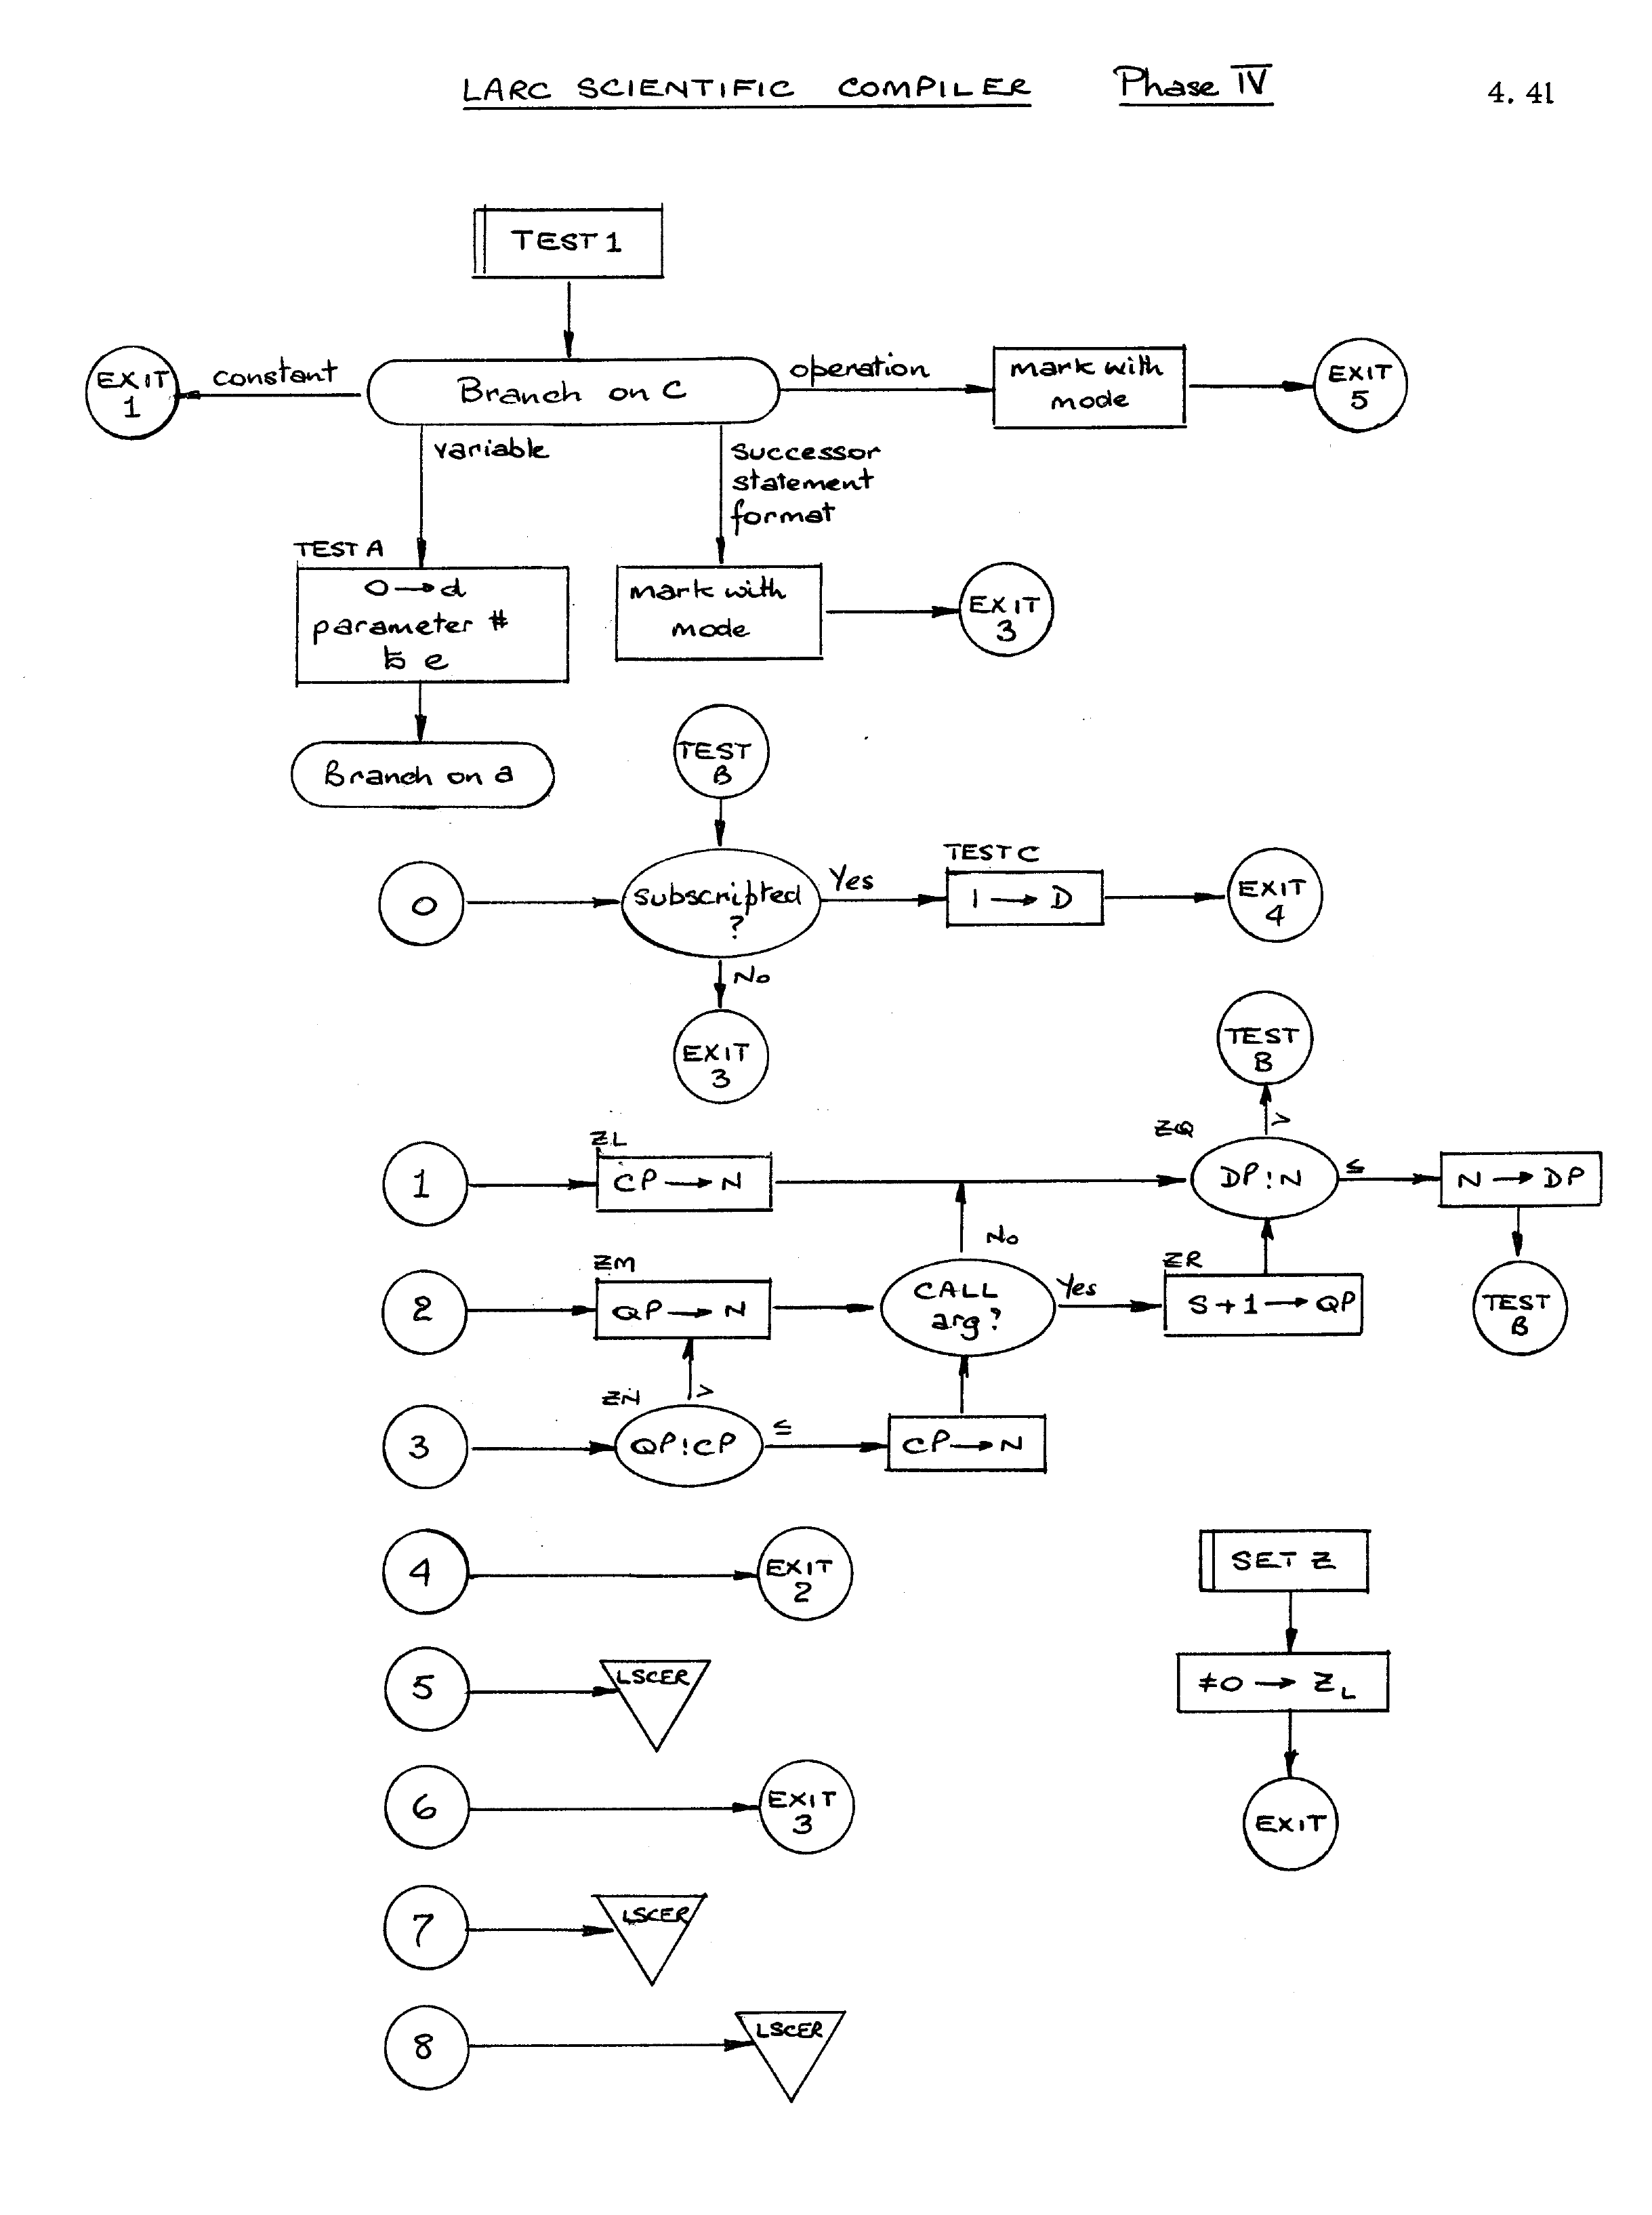 LARC SCIENTIFIC COMPILER Phase IV 4.41
TEST 1
EXIT
1
constant
Branch on C
operation
mark with
mode
EXIT
5
variable
successor
statement
format
TEST A
0 → d
parameter #
e
mark with
mode
EXIT
3
Branch on a
TEST
B
0
Subscripted
?
Yes
TEST C
1 → D
EXIT
4
No
EXIT
3
TEST
B
>
1
ZL
CP → N
ZQ
DP:N
≤
N → DP
No
2
ZM
QP → N
CALL
arg?
Yes
ZR
S+1 → QP
TEST
B
>
3
ZN
QP:CP
≤
CP → N
4
EXIT
2
SET Z
5
LSCER
≠0 → ZL
6
EXIT
3
EXIT
7
LSCER
8
LSCER